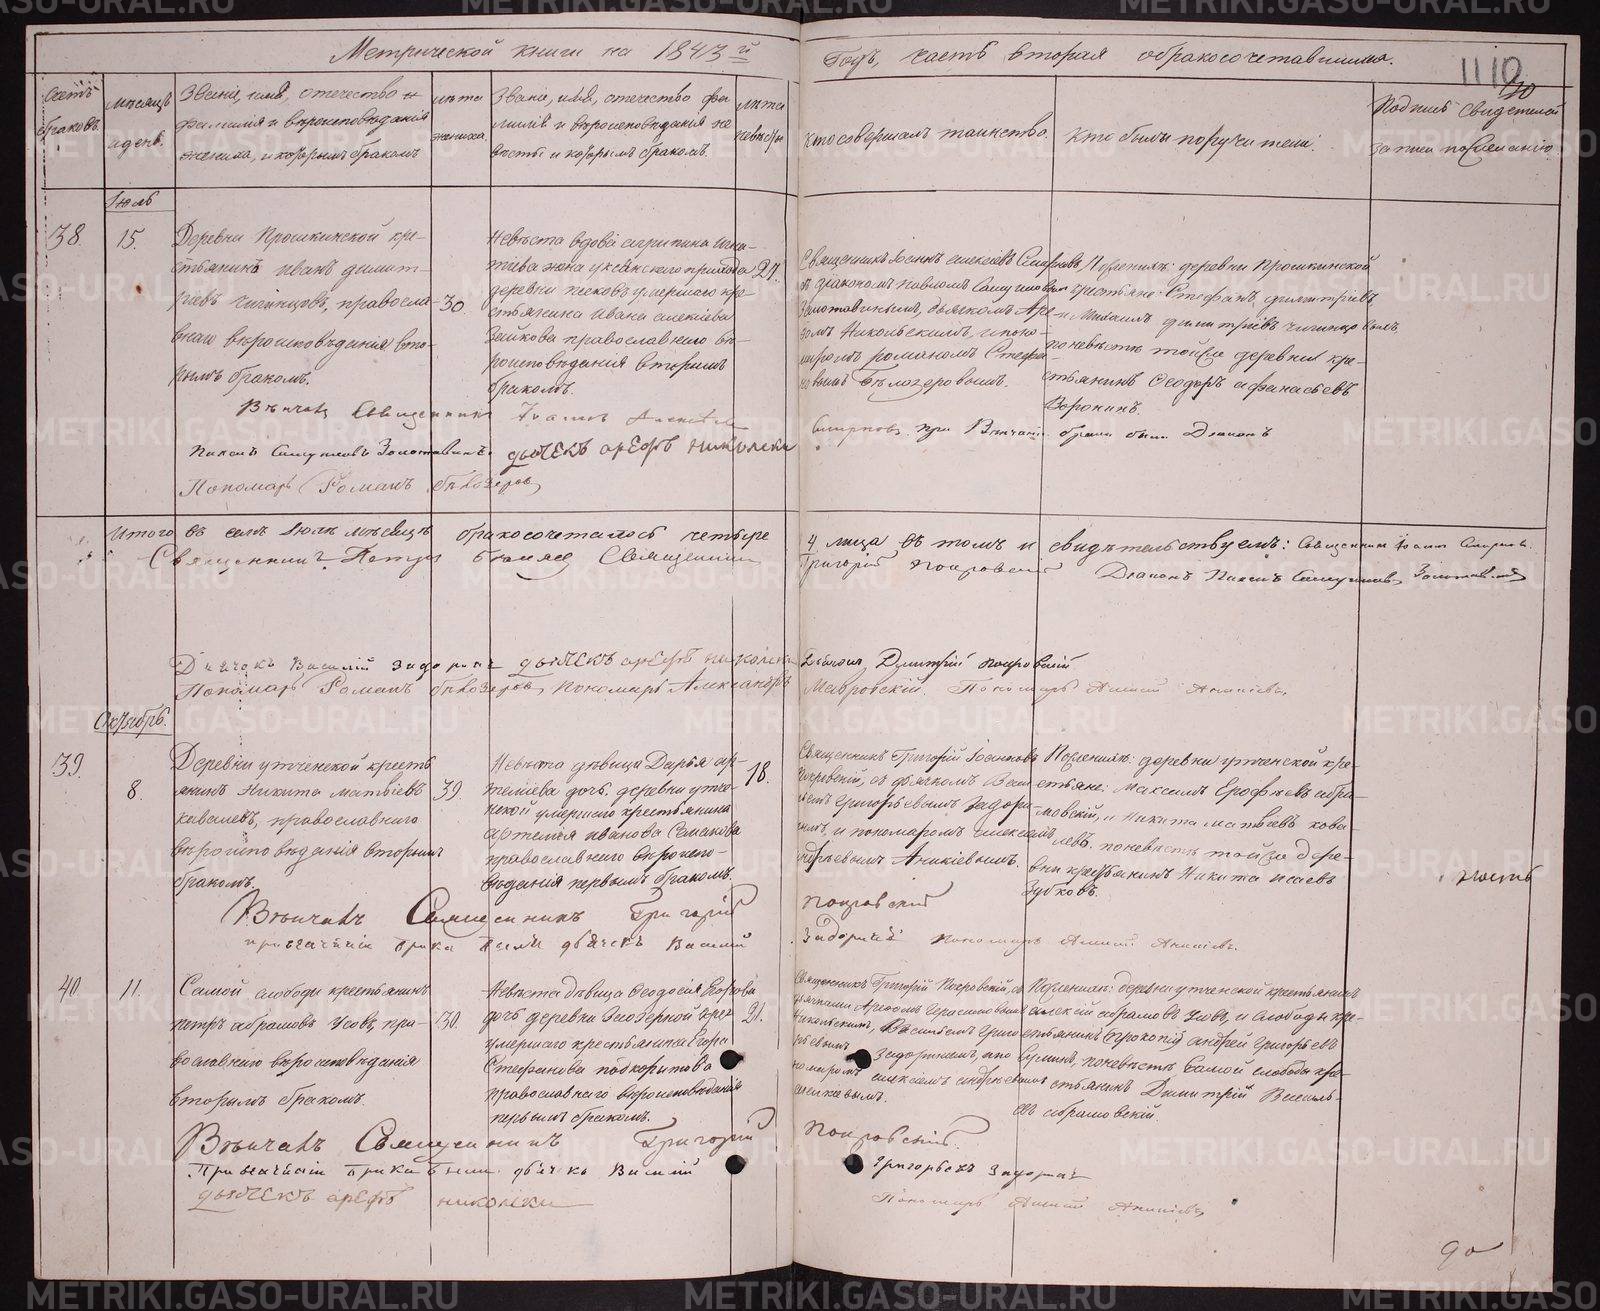 Метрической книги на 1843й
Годъ, часть вторая о бракосочетавшихся.
1110
Счетъ браковъ.
мѣсяцъ и день.
Званіе, имя, отечество и
фамилія и вѣроисповѣданія
жениха, и которымъ бракомъ
лѣта жениха.
Званіе, имя, отечество фа
милія и вѣроисповѣданія не
вѣсты и которымъ бракомъ.
лѣта невѣсты
Кто совершалъ таинство.
Кто были поручители.
Подпись свидетелей
записи по желанію.
Іюль
38.
15.
Деревни Прошкинской кре-
стьянинъ Иванъ Димит-
ріевъ Чичинцовъ, правосла-
внаго вѣроисповѣданія вто-
рымъ бракомъ.
30.
Невѣста вдова Агрипина Игна-
тіева жена Уксянского прихода
деревни Песковъ умершаго кре-
стьянина Ивана Алексіева
Зайкова православнаго вѣ-
роисповѣданія вторымъ
бракомъ.
27.
Священникъ Іоаннъ Алексіевъ Смирновъ
съ діакономъ Павломъ Самуиловымъ
Золотавинымъ, дьячкомъ Аре-
фомъ Никольскимъ, и поно-
маромъ Романомъ Стефа-
новымъ Бѣлозеровымъ.
По женихѣ: деревни Прошкинской
крестьяне: Стефанъ Димитріевъ
и Михаилъ Димитріевъ Чичинцовы,
по невѣстѣ той же деревни кре-
стьянинъ Феодоръ Афанасьевъ
Воронинъ.
Вѣнчалъ Священникъ Іоаннъ Алексѣевъ
Смирновъ при Вѣнчаніи брака были Діаконъ
Павелъ Самуиловъ Золотавинъ. дьячекъ Арефъ Николски
Пономарь Романъ Бѣлозеровъ
Итого въ семъ Іюлѣ мѣсяцѣ бракосочеталось четыре
4 лица въ томъ и свидѣтельствуемъ: Священникъ Іоаннъ Смирновъ
Священникъ Петръ Священникъ
Григорій Покровскій Діаконъ Павелъ Самуиловъ Золотавинъ
Дьячекъ Василій Задоринъ дьячекъ Арефъ Николски
Дьячокъ Дмитрій Покровскій
Пономарь Романъ Бѣлозеровъ Пономарь Александръ
Мавровскій. Пономарь Алексій Аникіевъ
Октябрь.
39.
8.
Деревни Утченской кресть
янинъ Никита Матвіевъ
Кавалевъ, православнаго
вѣроисповѣданія вторымъ
бракомъ.
39.
Невѣста дѣвица Дарья Ар-
теміева дочь деревни Утче-
нской умершаго крестьянина
Артемія Иванова Семакова
православнаго вѣроиспо-
вѣданія первымъ бракомъ.
18.
Священникъ Григорій Іоанновъ
Покровскій, съ дьячкомъ Васи
ліемъ Григорьевымъ Задори-
нымъ и пономаромъ Алексіемъ
Андрьевымъ Аникіевымъ.
По женихѣ: деревни Утченской кре-
стьяне: Максимъ Ерофіевъ Абра-
мовскій, и Никита Матвіевъ Кова-
левъ. по невѣстѣ той же дере-
вни крестьянинъ Никита Исаевъ
Зубковъ.
Вѣнчалъ Священникъ Григорій
Покровскій
при вѣнчаніи брака были дьячекъ Василій
Задоринъ пономарь Алексій Аникіевъ.
40.
11.
Самой слободы крестьянинъ
Петръ Абрамовъ Усовъ, пра-
вославнаго вѣроисповѣданія
вторымъ бракомъ.
30.
Невѣста дѣвица Феодосія Егорова
дочь деревни Заозерной
умершаго крестьянина Егора
Стефанова Подкорытова
православнаго вѣроисповѣданія
первымъ бракомъ.
21.
Священникъ Григорій Покровскій, съ
дьячками Арефомъ Герасимовымъ
Никольскимъ, Васильемъ Григо
рьевымъ Задоринымъ, и по
номаромъ Алексіемъ Андрьевымъ
Аникіевымъ.
По женихѣ: деревни Утченской крестьянинъ
Алексій Абрамовъ Усовъ, и слободы кре-
стьянинъ Андрей Григорьевъ
Сулинъ, по невѣстѣ Самой слободы кре-
стьянинъ Димитрій Василь-
евъ Абрамовскій.
Вѣнчалъ Священникъ Григорій
Покровскій.
При вѣнчаніи брака были дьячекъ Василій
Григорьевъ Задоринъ
дьячекъ Арефъ Николски
Пономарь Алексій Аникіевъ
METRIKI.GASO-URAL.RU